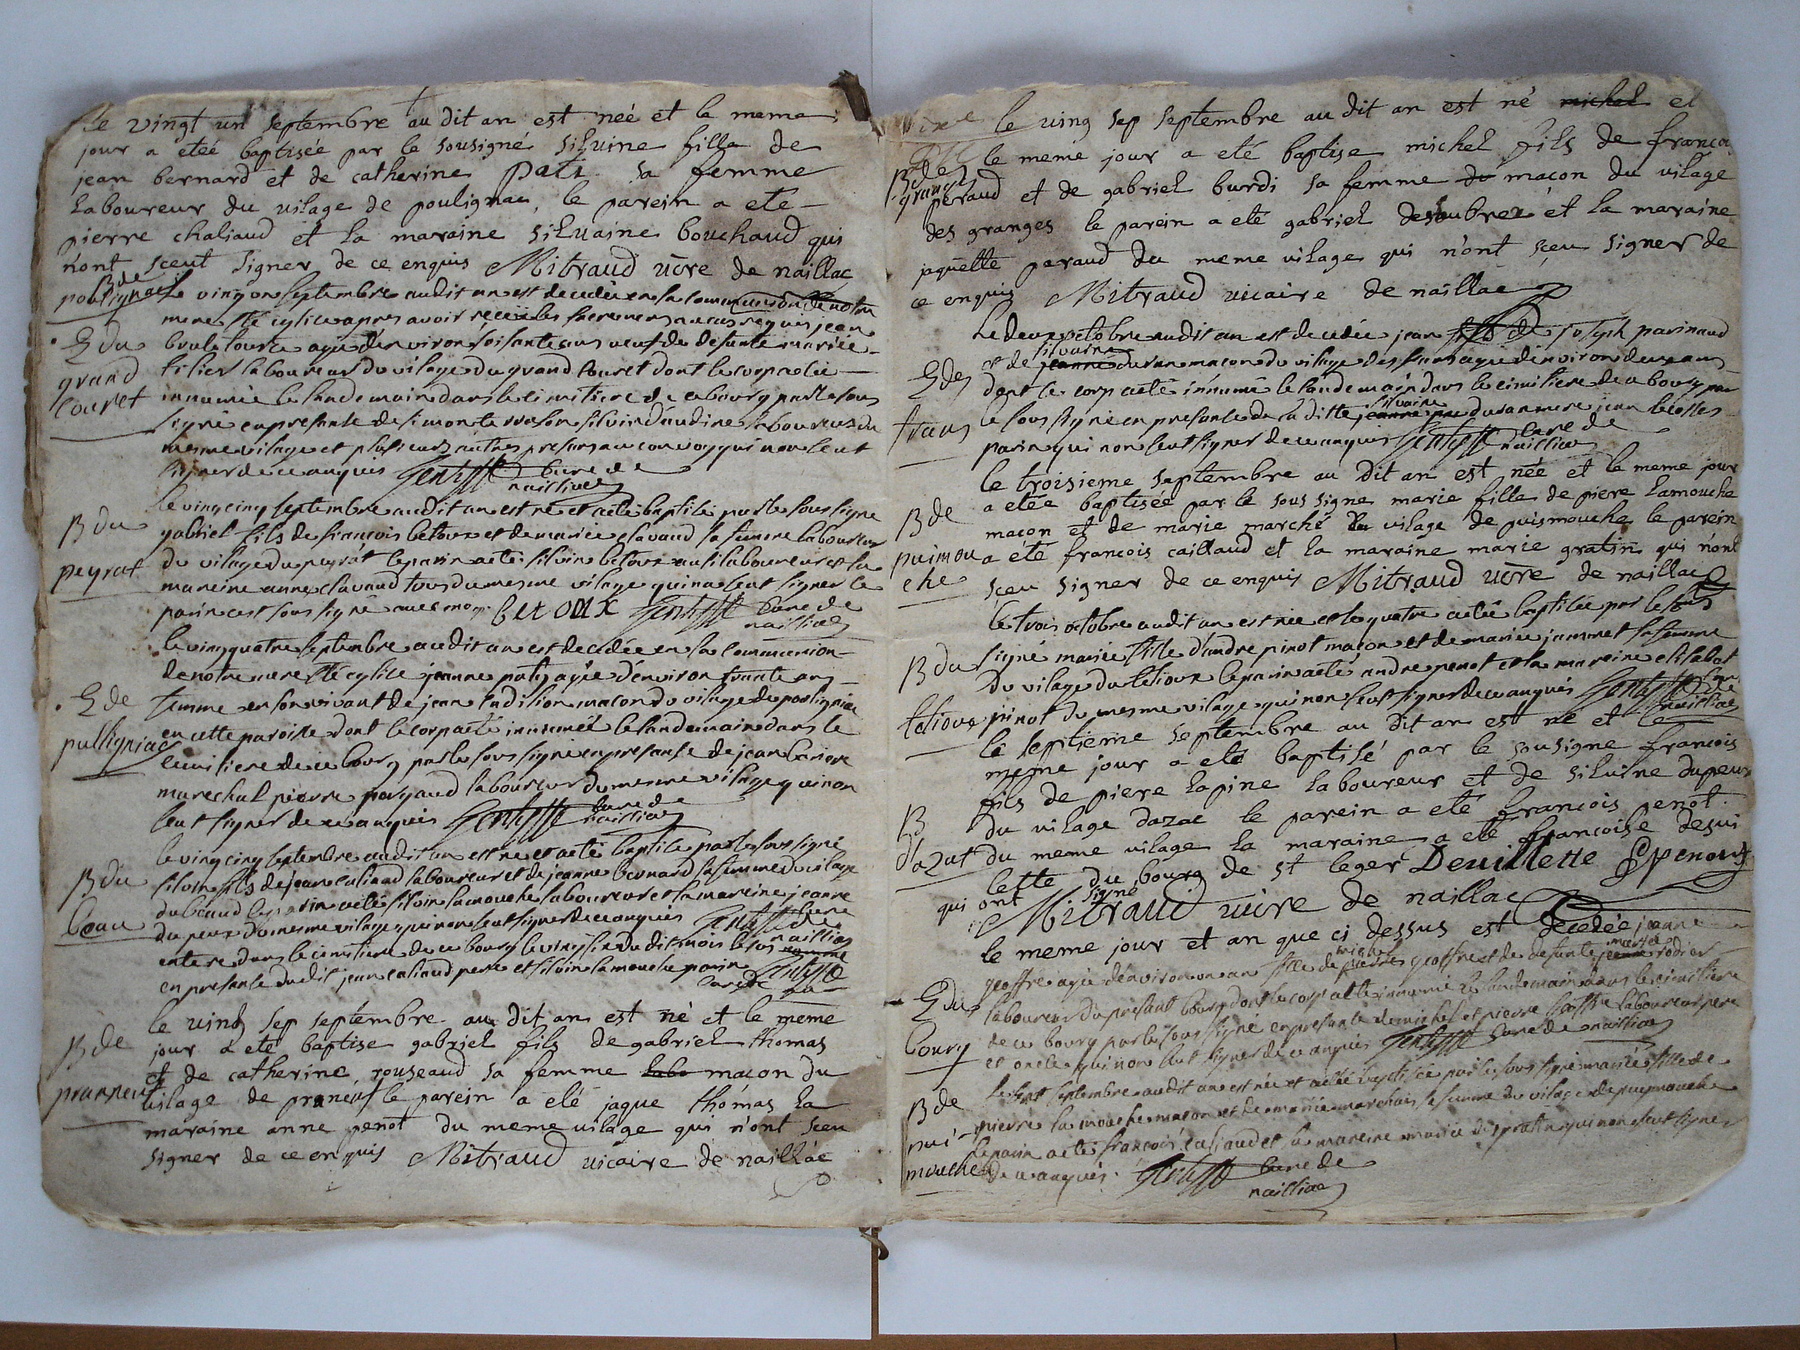 Le vingt un septembre au dit an est née et le meme
jour a eteé baptisée par le sousigné siluine fille de
jean bernard et de catherine pati sa femme
laboureur du uilage de poulignac, le parein a ete
pierre chaliaud et la maraine siluaine bouchaud qui
n'ont sceut signer de ce enquis Mitraud uicre de naillac
B de
poulignac
Le vingt septembre audit an est decedée en la communion de notre
mere ste eglise apres avoir receu les sacremens jean
E du
grand
Couret
agé d'environ soisante ans veuf de defunte mariée
laboureur du vilage du grand Couret dont le corp a eté
innumée le landemain dans le cimetiere de ce bourg par le sous
signé en presante de laboureur du
mesme vilage et plusieurs autres qui non seut
signer de ce anquis Gentysse Cure de
nailliac
B du
peyrat
le ving cinq septembre audit an est né et a eté baptisé par le sous signe
gabriel fils de francois betoux et de mariée clavaud sa femme laboureur
du village du peyrat le parin a eté silvin betoux aussi laboureur et la
mareine anne clavaud tous du mesme vilage qui na seut signer le
parin cest sous signé avec moy betoux Gentysse Cure de
nailliac
E de
pulligniac
le ving quatre septembre audit an est decedée en la communion
de notre mere ste eglise jeanne patiy agée d'environ trante ans
femme en son vivant de jean macon du vilage de pouligniac
en cette paroisse dont le corp a eté innumée le landemain dans le
cimitiere de ce bourg par le sous signé en presante de jean
marechal pierre laboureur du mesme vilage qui non
seut signer de ce anquis Gentysse Cure de
nailliac
B du
beau
le ving cinq septembre audit an est né et a eté baptisé par le sous signé
silvin fils de jean caliaud laboureur et de jeanne bernard sa femme du vilage
du baud le parin a eté silvin lamouche laboureur et la mareine jeanne
du peux du mesme vilage qui non seut signer de ce anquis Gentysse Cure de
nailliac
enteré dans le cimitiere de ce bourg le ving six du dit mois
en presante du dit jean caliaud pere et silvin lamouche parin Gentysse
Cure de
B de
pranneuf
le uing sep septembre au dit an est né et le meme
jour a eté baptise gabriel fils de gabriel thomas
et de catherine rouseaud sa femme labo macon du
uilage de praneuf le parein a eté jaque thomas la
maraine anne penot du meme uilage qui n'ont sceu
signer de ce enquis Mitraud uicaire de naillac
le uing sep septembre au dit an est né michel et
B des
granges
le meme jour a eté baptise michel fils de francoi
peraud et de gabriel burdi sa femme du macon du uilage
des granges le parein a eté gabriel desoubrez et la maraine
jaquette peraud du meme uilage qui n'ont sceu signer de
ce enquis Mitraud uicaire de naillac
E des
Le deux octobre audit an est decedée jean fils de joseph parinaud
et de jeanne silvaine duran macon du vilage des agée denviron deux ans
dont le corp a eté innumé le landemain dans le cimitiere de ce bourg par
le sous signé en presante de la ditte jeanne silvaine duran mere jean
parin qui non seut signer de ce anquis Gentysse Cure de
nailliac
B de
puimou
che
le troisieme septembre au dit an est née et le meme jour
a etée baptisée par le sous signe marie fille de piere lamouche
macon et de marie marché du uilage de puismouche le parein
a eté francois caillaud et la maraine marie gratin qui n'ont
sceu signer de ce enquis Mitraud uicre de naillac
B du
telioux
le trois octobre audit an est née et le quatre a etée baptisée par le sous
signé mariée fille d'andre pinot macon et de mariée jammet sa femme
du vilage du telioux le parin a eté andre penot et la mareine elisabet
pinot du mesme vilage qui non seut signer de ce anquis Gentysse Cure de
nailliac
B
d'azat
le septieme septembre au dit an est né et le
meme jour a eté baptisé par le sousigne francois
fils de piere lapine laboureur et de siluine dupeux
du uilage dazac le parein a eté francois penot
du meme uilage la maraine a eté francoise desui
lette du bourg de st leger Deuillette penot
qui ont signé Mitraud uicre de naillac
le meme jour et an que ci dessus est decedée jeanne
E du
bourg
geoffre agée denviron un an fille de michel geoffre et de defunte mariée rodier
laboureur du present bourg dont le corp a eté innumé le landemain dans le cimitiere
de ce bourg par le sous signé en presante de michel et pierre laboureur pere
et oncle qui non seut signer de ce anquis Gentysse Cure de nailliac
B de
pui-
mouche
Le sept septembre audit an est née et a eté baptisée par le sous signé mariée fille de
pierre la mouche macon et de mariée marchais sa femme du vilage de puymouche
le parin a eté francois caliaud et la mareine mariée gratin qui non seut signer
de ce anquis. Gentysse Cure de
nailliac